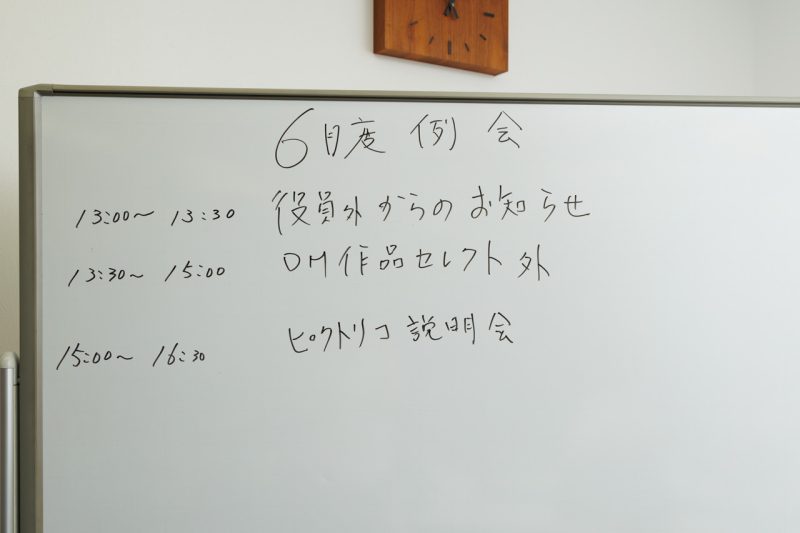 6月度 例会
13:00〜 13:30 役員外からのお知らせ
13:30〜 15:00 DM作品セレクト外
15:00〜 16:30 ピクトリコ 説明会